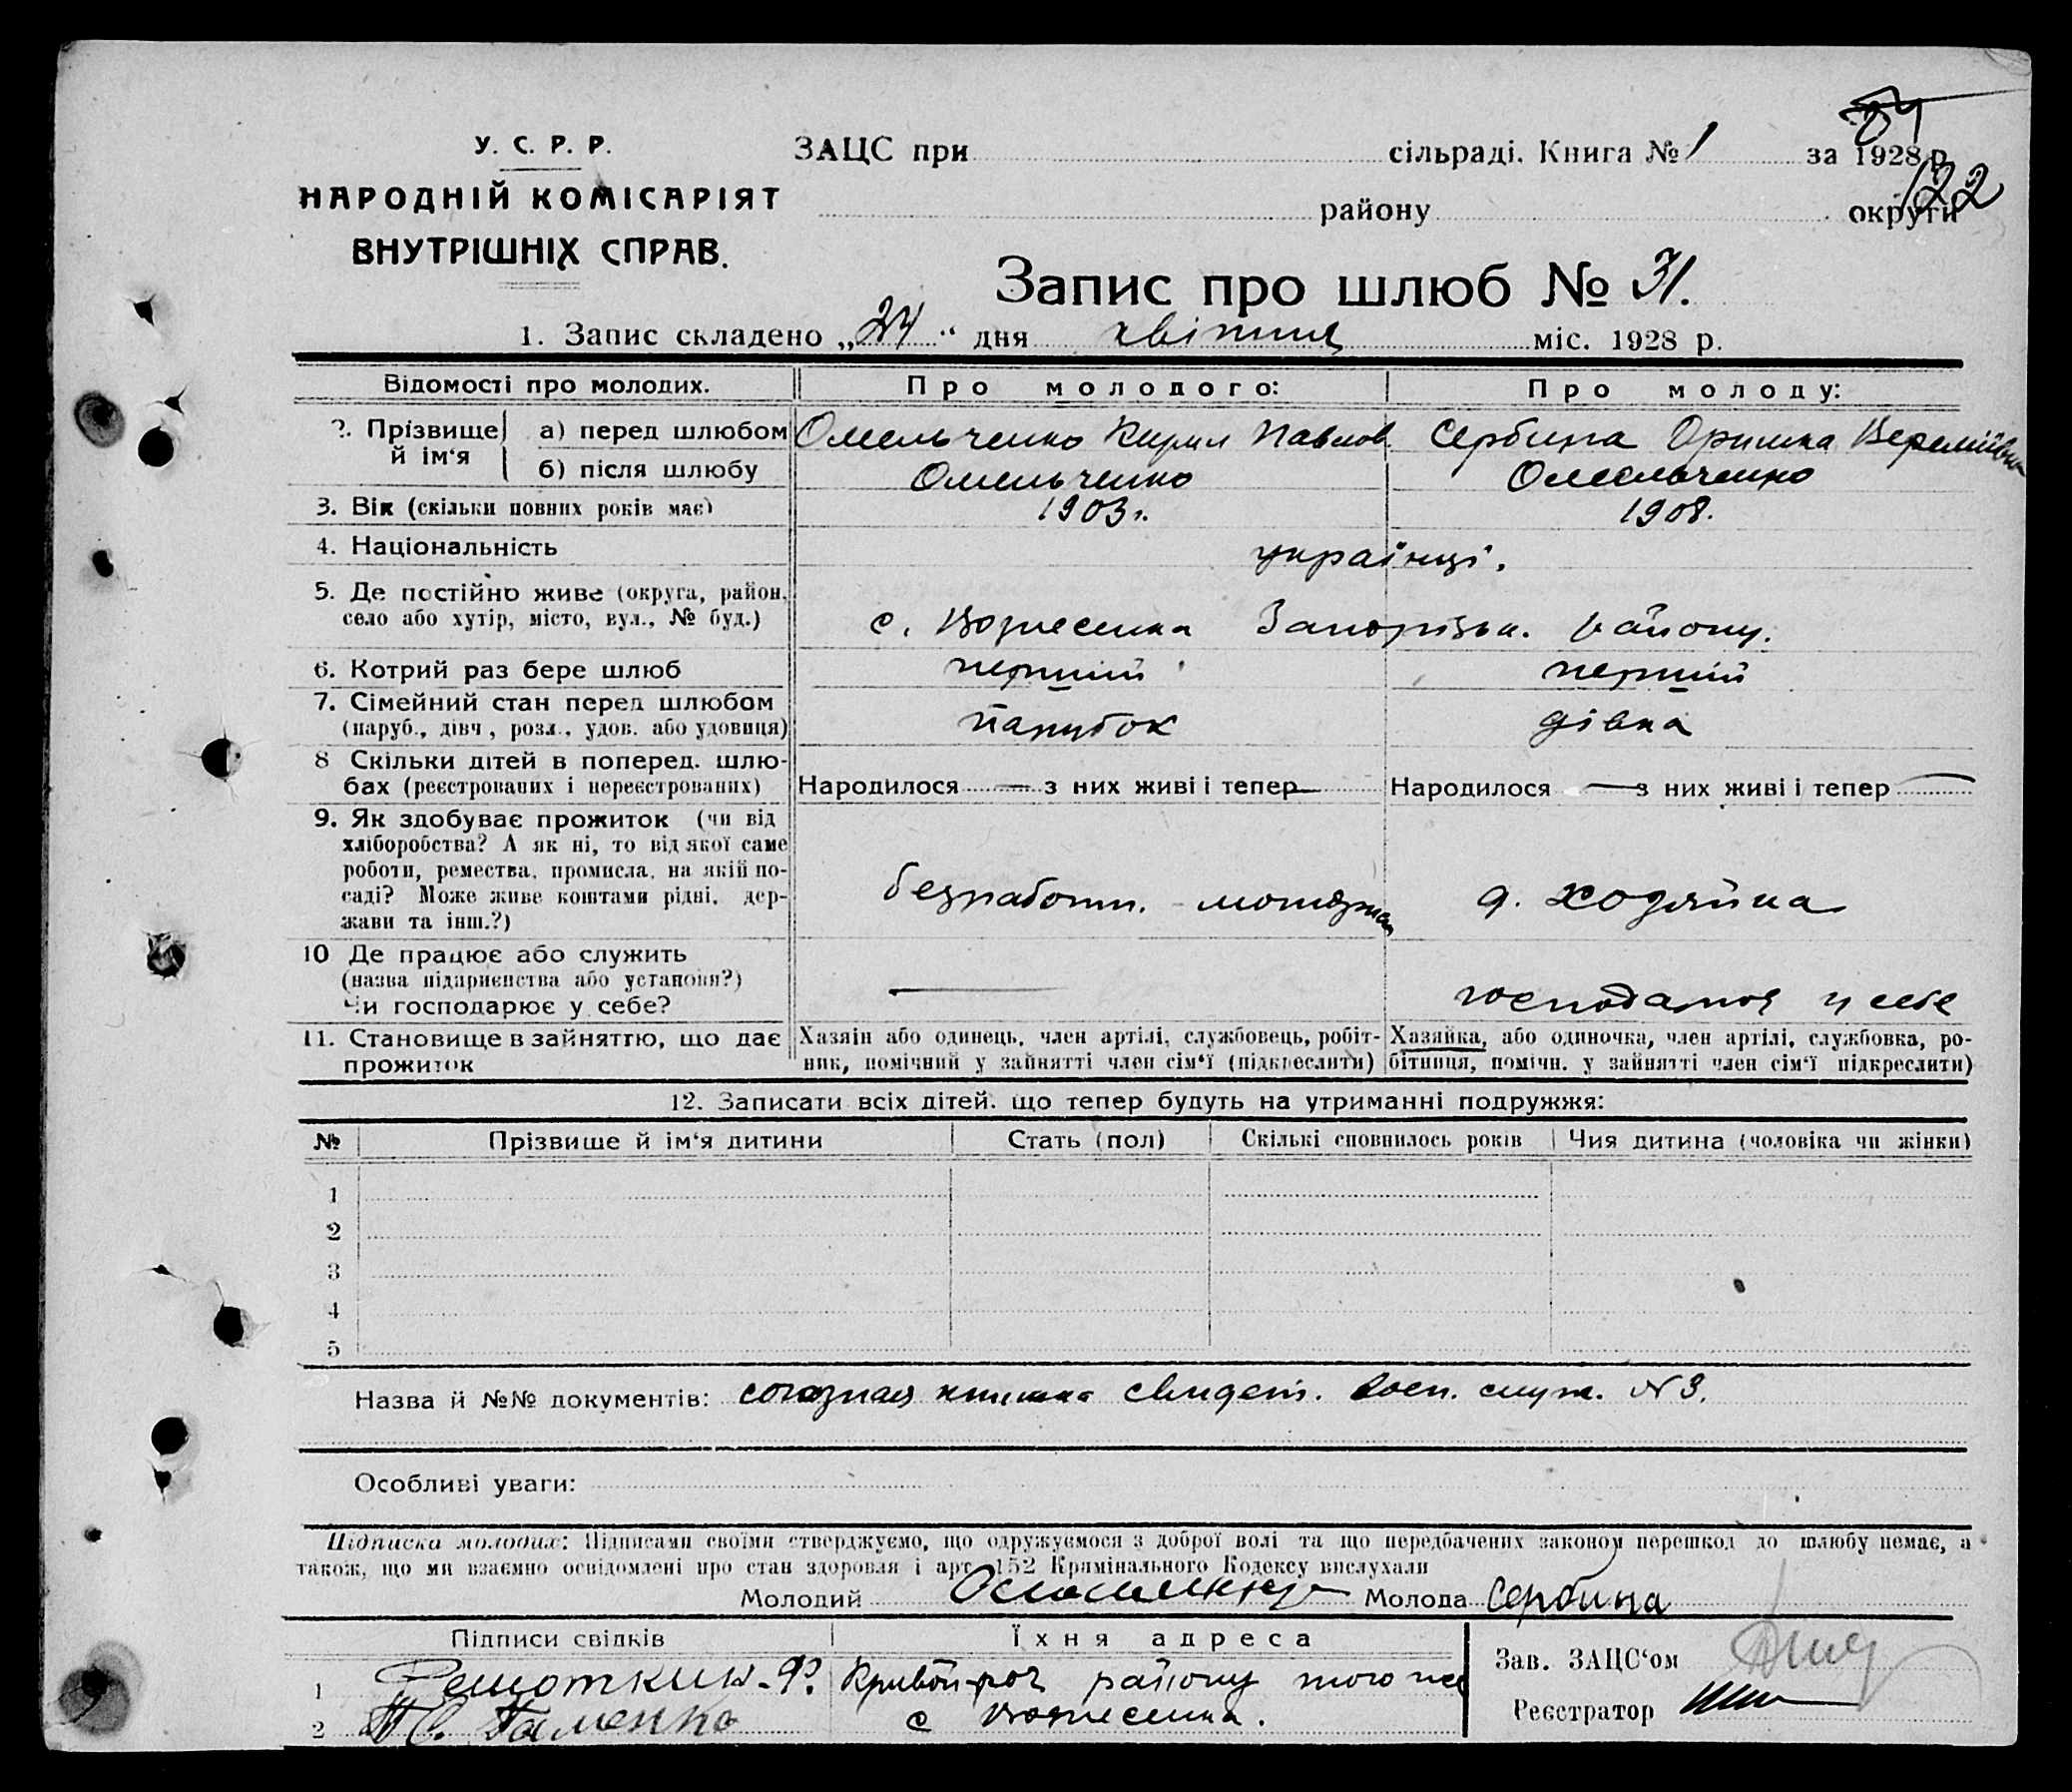 У. С. Р. Р.
НАРОДНІЙ КОМІСАРІЯТ
ВНУТРІШНІХ СПРАВ.
ЗАЦС при сільраді. Книга № 1 за 1928 р.
району округи
122
Запис про шлюб № 31.
1. Запис складено „24“ дня квітня міс. 1928 р.
Відомості про молодих. Про молодого: Про молоду:
2. Прізвище й ім‘я а) перед шлюбом Омельченко Кирил Павлов. Сербина Оришка Веремїївна
б) після шлюбу Омельченко Омельченко
3. Вік (скільки повних років має) 1903 г. 1908.
4. Національність українці.
5. Де постійно живе (округа, район,
село або хутір, місто, вул., № буд.) с. Вознесенка Запорізьк. району.
6. Котрий раз бере шлюб перший перший
7. Сімейний стан перед шлюбом
(паруб., дівч., розл., удов. або удовиця) парубок дівка
8 Скільки дітей в поперед. шлю-
бах (реєстрованих і нереєстрованих) Народилося — з них живі і тепер — Народилося — з них живі і тепер —
9. Як здобуває прожиток (чи від
хліборобства? А як ні, то від якої саме
роботи, ремества, промисла, на якій по-
саді? Може живе коштами рідні, дер-
жави та інш.?) безработн. - д. хозяйка
10 Де працює або служить
(назва підприєнства або установи?)
Чи господарює у себе? — у себе
11. Становище в зайняттю, що дає
прожиток
Хазяїн або одинець, член артілі, службовець, робіт-
ник, помічний у зайнятті член сім‘ї (підкреслити)
Хазяйка, або одиночка, член артілі, службовка, ро-
бітниця, помічн. у зайнятті член сім‘ї підкреслити)
12. Записати всіх дітей, що тепер будуть на утриманні подружжя:
№ Прізвище й ім‘я дитини Стать (пол) Скількі сповнилось років Чия дитина (чоловіка чи жінки)
1
2
3
4
5
Назва й №№ документів: союзная книжка свидет. восп. служ. N 3.
Особливі уваги:
Підписка молодих: Підписами своїми стверджуємо, що одружуємося з доброї волі та що передбачених законом перешкод до шлюбу немає, а
також, що ми взаємно освідомлені про стан здоровля і арт 152 Крамінального Кодексу вислухали
Молодий Молода Сербина
Підписи свідків Їхня адреса
1 Решоткин Кривой-рог району того же
2 с Вознесенка.
Зав. ЗАЦС‘ом
Реєстратор